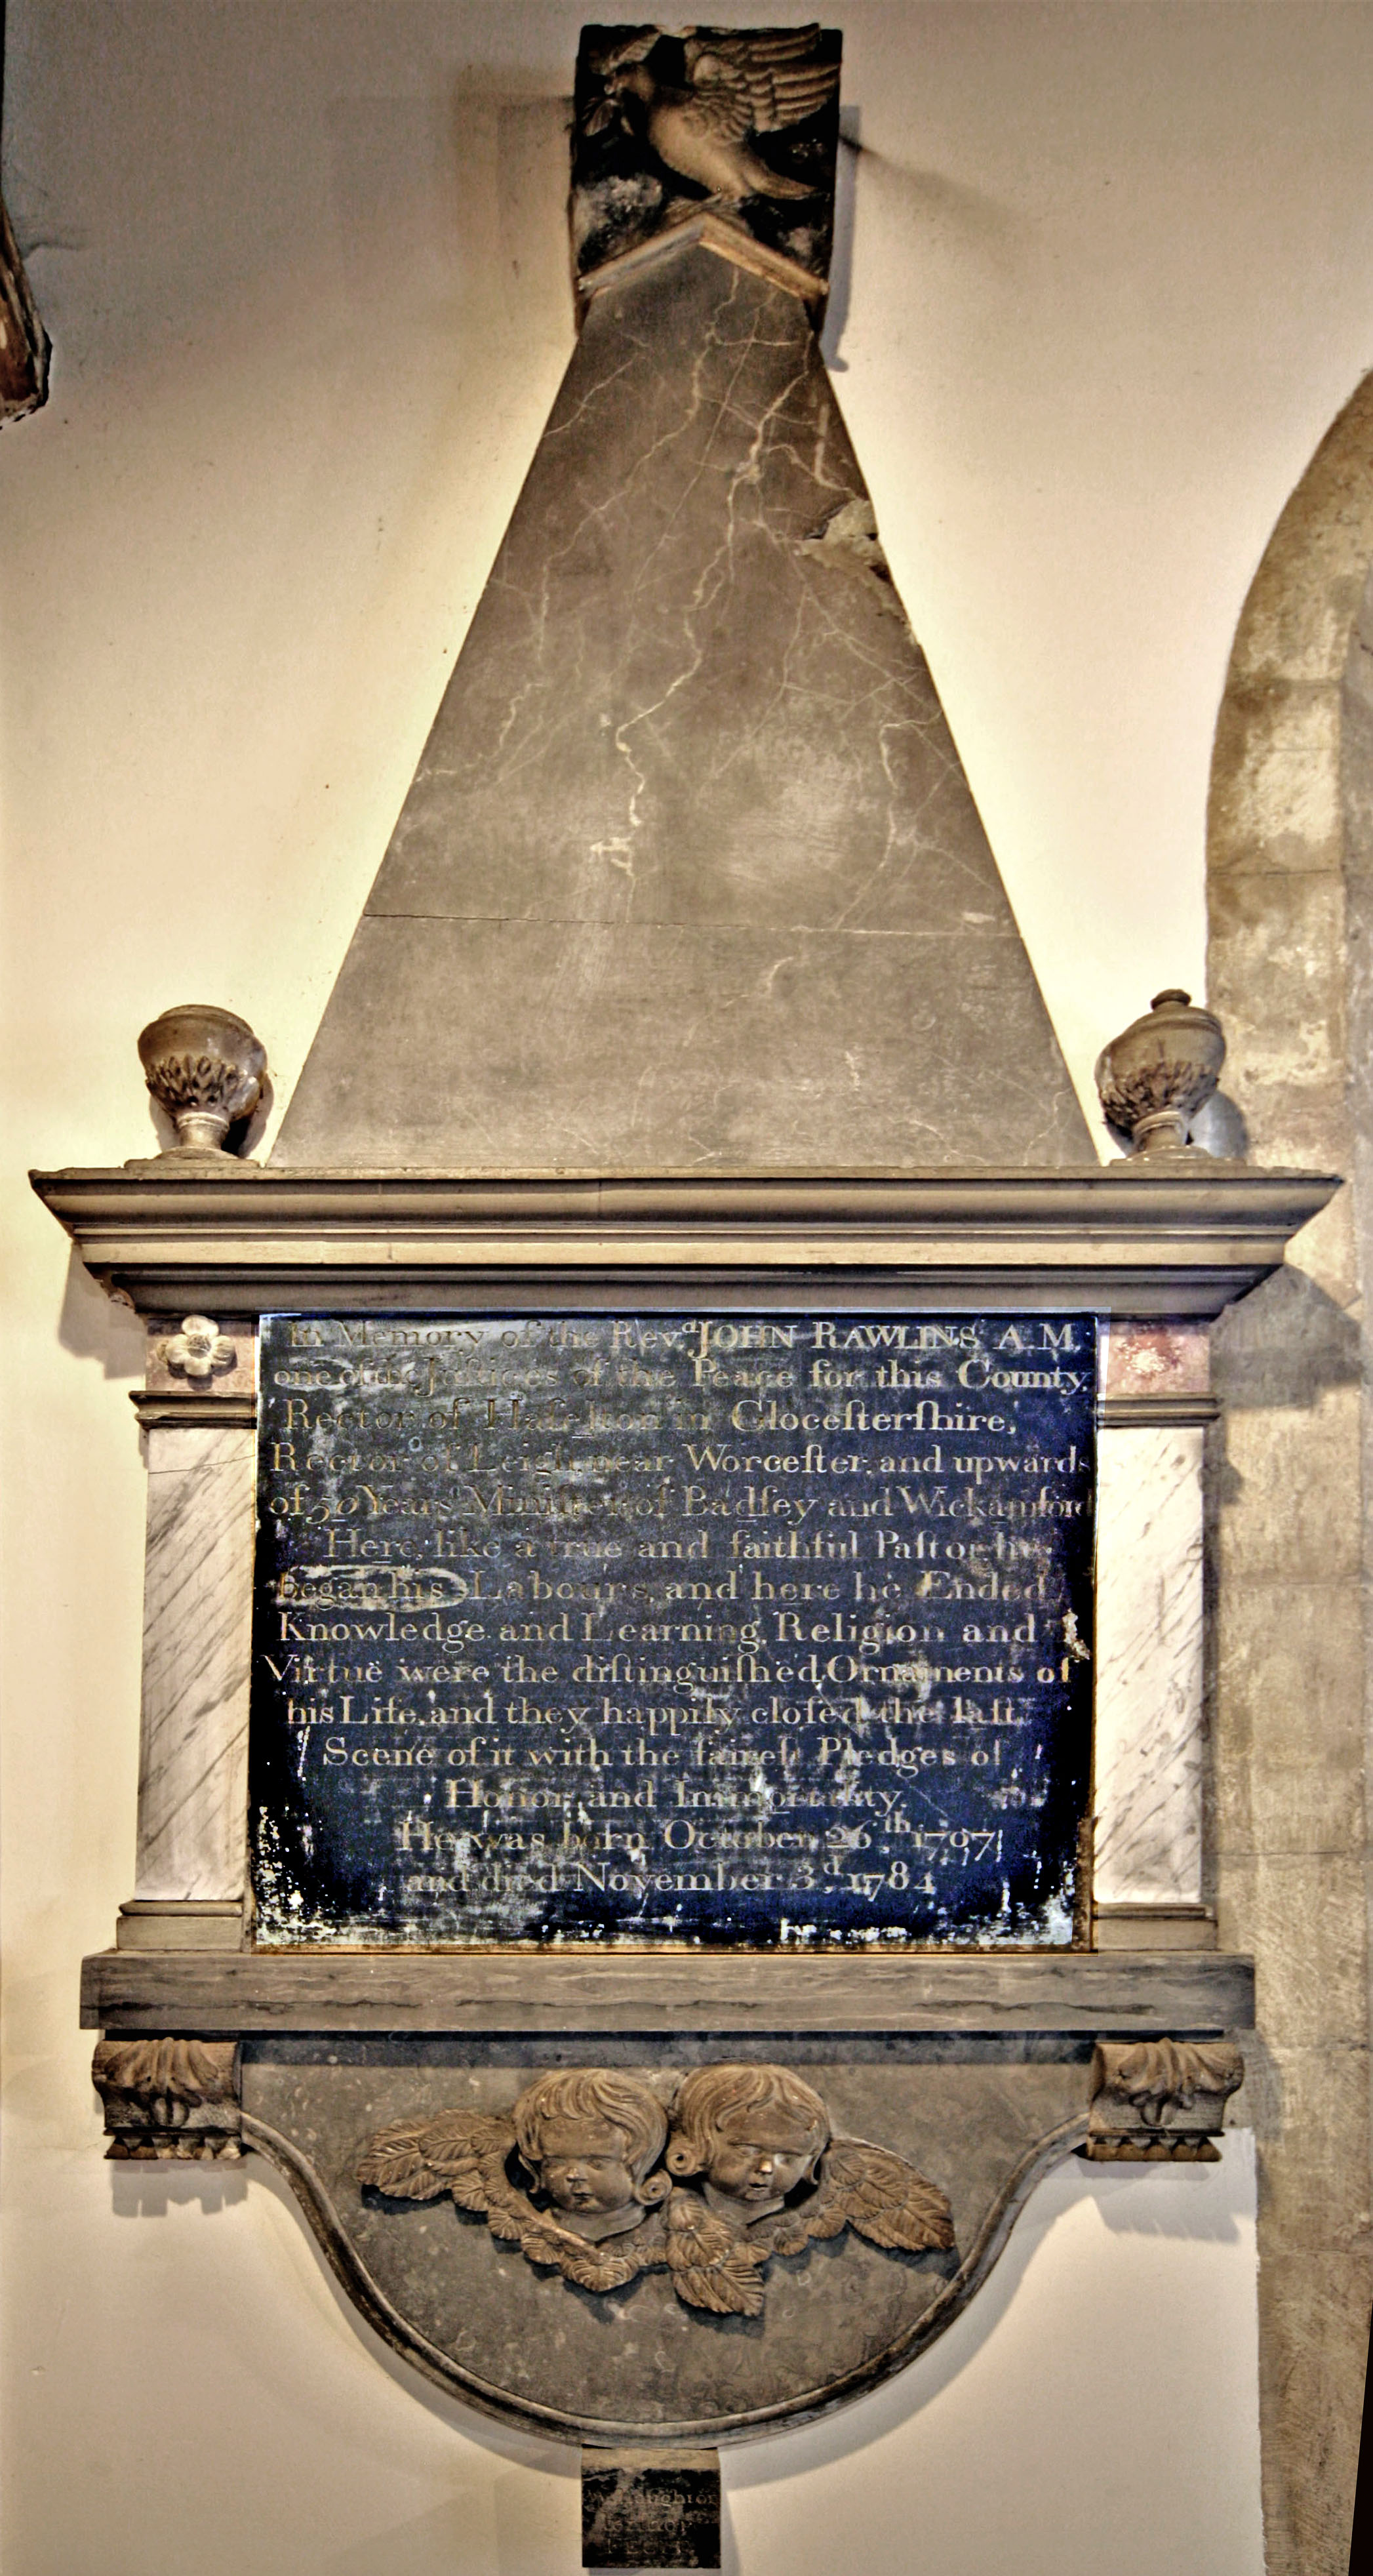 In Memory of the Rev.ᵈ JOHN RAWLINS A.M.
one of the Juſtices of the Peace for this County,
Rector of Haſelton in Gloceſterſhire,
Rector of Leigh, near Worceſter, and upwards
of 50 Years Miniſter of Badſey and Wickamford
Here, like a true and faithful Paſtor, he
began his Labours, and here he Ended
Knowledge and Learning, Religion and
Virtue were the diſtinguiſhed Ornaments of
his Life, and they happily cloſed the laſt
Scene of it with the faireſt Pledges of
Honor and Immortality.
He was born October 26.ᵗʰ 1707
and died November 3.ᵈ 1784